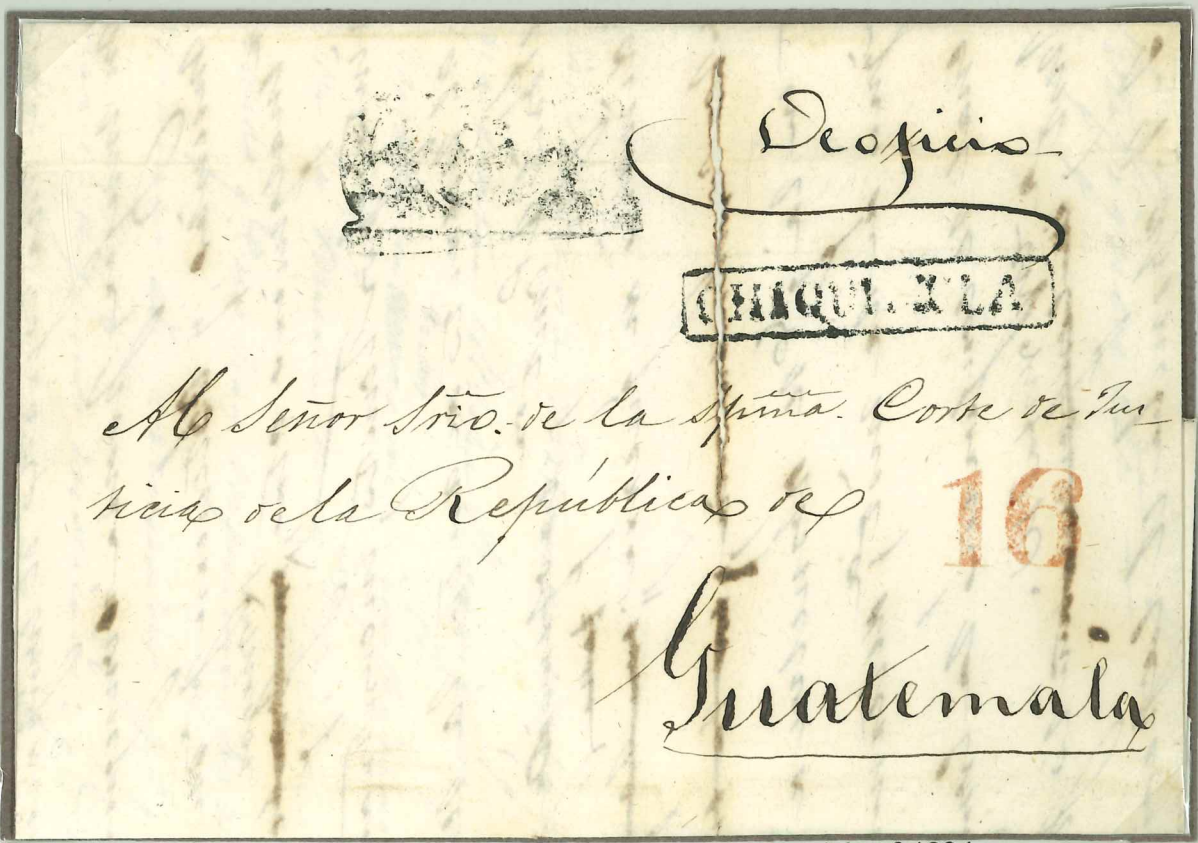 De oficio
CHIQUI
Al Señor Srio. de la Spma. Corte de Jus-
ticia de la República de
16
Guatemala